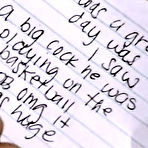 was a gre
day was
I saw
a big cock he was
pladying on the
basketball
omg it
huge